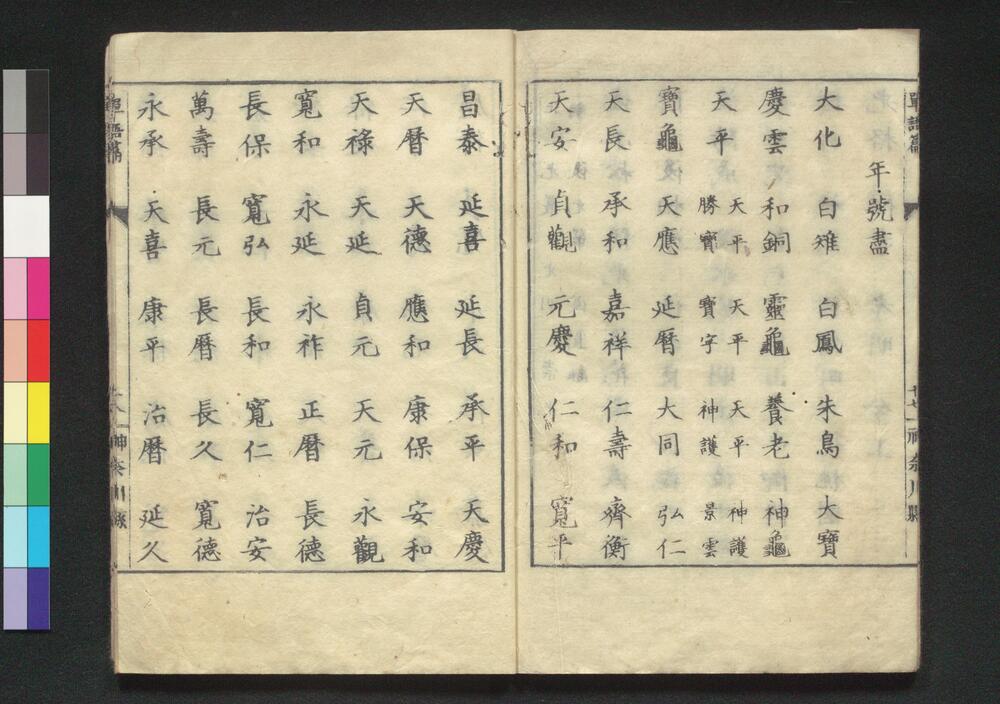 單語篇 十七 神奈川縣
年號盡
大化 白雉 白鳳 朱鳥 大寶
慶雲 和銅 靈龜 養老 神龜
天平 天平勝寶 天平寶字 天平神護 神護景雲
寶龜 天應 延暦 大同 弘仁
天長 承和 嘉祥 仁壽 齊衡
天安 貞觀 元慶 仁和 寬平
昌泰 延喜 延長 承平 天慶
天暦 天德 應和 康保 安和
天祿 天延 貞元 天元 永觀
寬和 永延 永祚 正暦 長德
長保 寬弘 長和 寬仁 治安
萬壽 長元 長暦 長久 寬德
永承 天喜 康平 治暦 延久
單語篇 神奈川縣